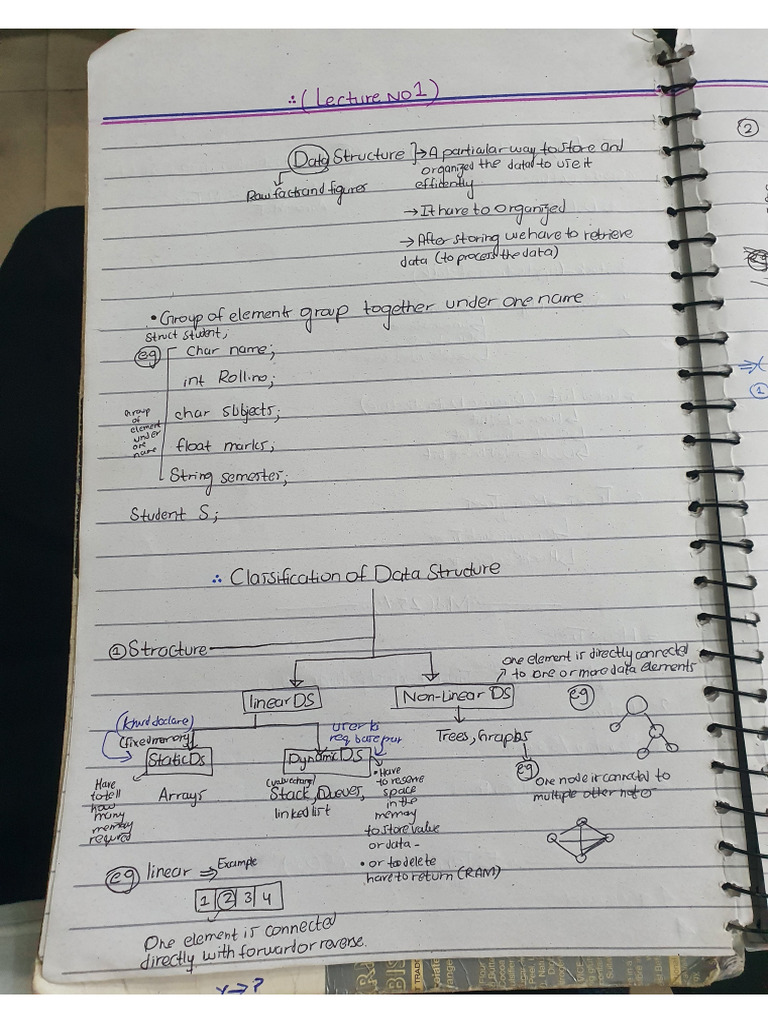 ∴ (Lecture No 1)
Data Structure → A particular way to store and
organized the data to use it
efficiently
Raw facts and figures
→ It have to organized
→ After storing we have to retrieve
data (to process the data)
• Group of elements group together under one name
Struct Student;
eg char name;
int Roll.no;
char sbbjects;
float marks;
String semester;
Group
of
element
under
one
name
Student S;
∴ Classification of Data Structure
① Structure
one element is directly connected
to one or more data elements
linear DS
Non-Linear DS
eg
(fixed memory)
Static DS
Have
to tell
how
many
memory
required
Arrays
user to
Dynamic DS
Stack, Queues,
linked list
• Have
to resume
space
in the
memory
to store value
or data -
• or to delete
have to return (RAM)
Trees, Graphs
eg
One node is connected to
multiple other nodes
eg linear ⇒ Example
1 2 3 4
One element is connected
directly with forward or reverse.
2
1
x → ?